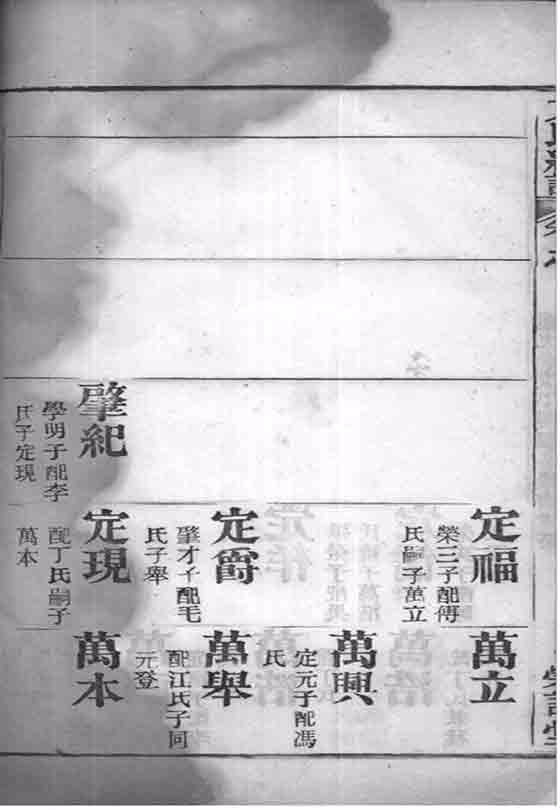 定福
榮三子配傅
氏嗣子萬立
定爵
肇才子配毛
氏子舉
肇紀
學明子配李
氏子定現
定現
配丁氏嗣子
萬本
萬立
萬興
定元子配馮
氏
萬舉
配江氏子同
元登
萬本